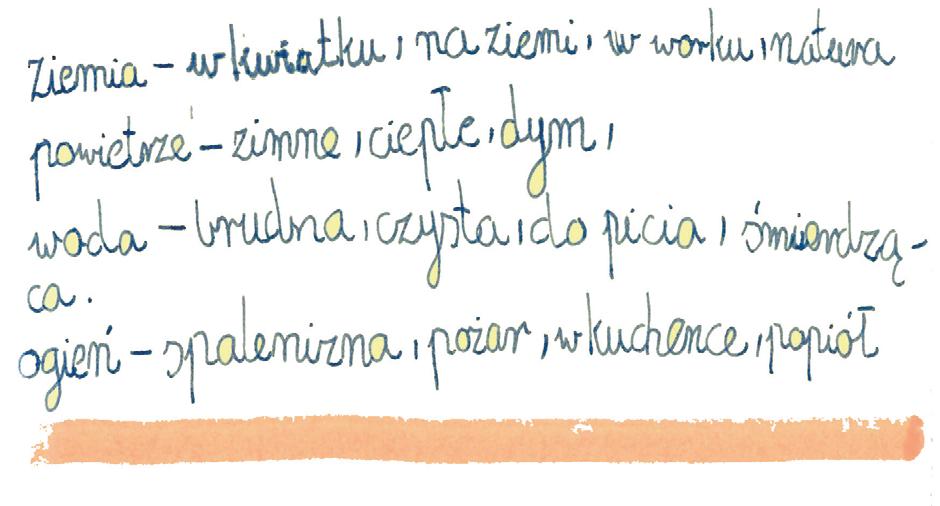 ziemia – w kwiatku, na ziemi, w worku, natura
powietrze – zimne, ciepłe, dym,
woda – brudna, czysta, do picia, śmierdzą-
ca.
ogień – spalenizna, pożar, w kuchence, popiół